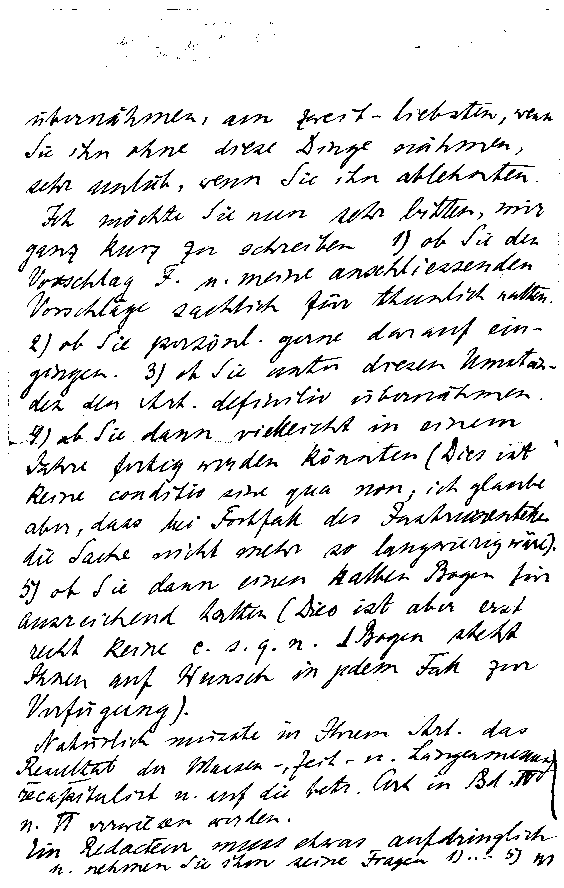 übernähmen, am zweit-liebsten, wenn
Sie ihn ohne diese Dinge nähmen,
sehr unlieb, wenn Sie ihn ablehnten.
Ich möchte Sie nun sehr bitten, mir
ganz kurz zu schreiben 1) ob Sie den
Vorschlag F. u. meine anschliessenden
Vorschläge sachlich für thunlich halten.
2) ob Sie persönl. gerne darauf ein-
gingen. 3) ob Sie unter diesen Umstän-
den den Art. definitiv übernähmen.
4) ob Sie dann vielleicht in einem
Jahre fertig werden könnten (Dies ist
keine conditio sine qua non, ich glaube
aber, dass bei Fortfall des Instrumentellen
die Sache nicht mehr so langwierig wäre).
5) ob Sie dann einen halben Bogen für
ausreichend halten (Dies ist aber erst
recht keine c. s. q. n. 1 Bogen steht
Ihnen auf Wunsch in jedem Fall zur
Verfügung).
Natürlich müsste in Ihrem Art. das
Resultat der Massen-, Zeit- u. Längenmessung
recapitulirt u. auf die betr. Art. in Bd. IV
u. VI verwiesen werden.
Ein Redacteur muss etwas aufdringlich
u. nehmen Sie ihm seine Fragen 1)...5)